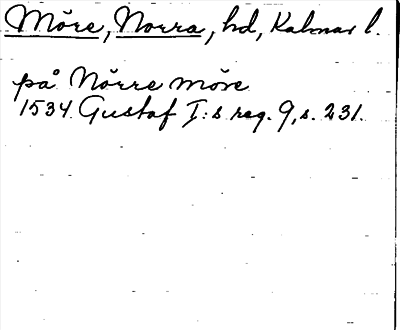 Möre, Norra, hd, Kalmar l.
på Nörre möre
1534 Gustaf I:s reg. 9, s. 231.